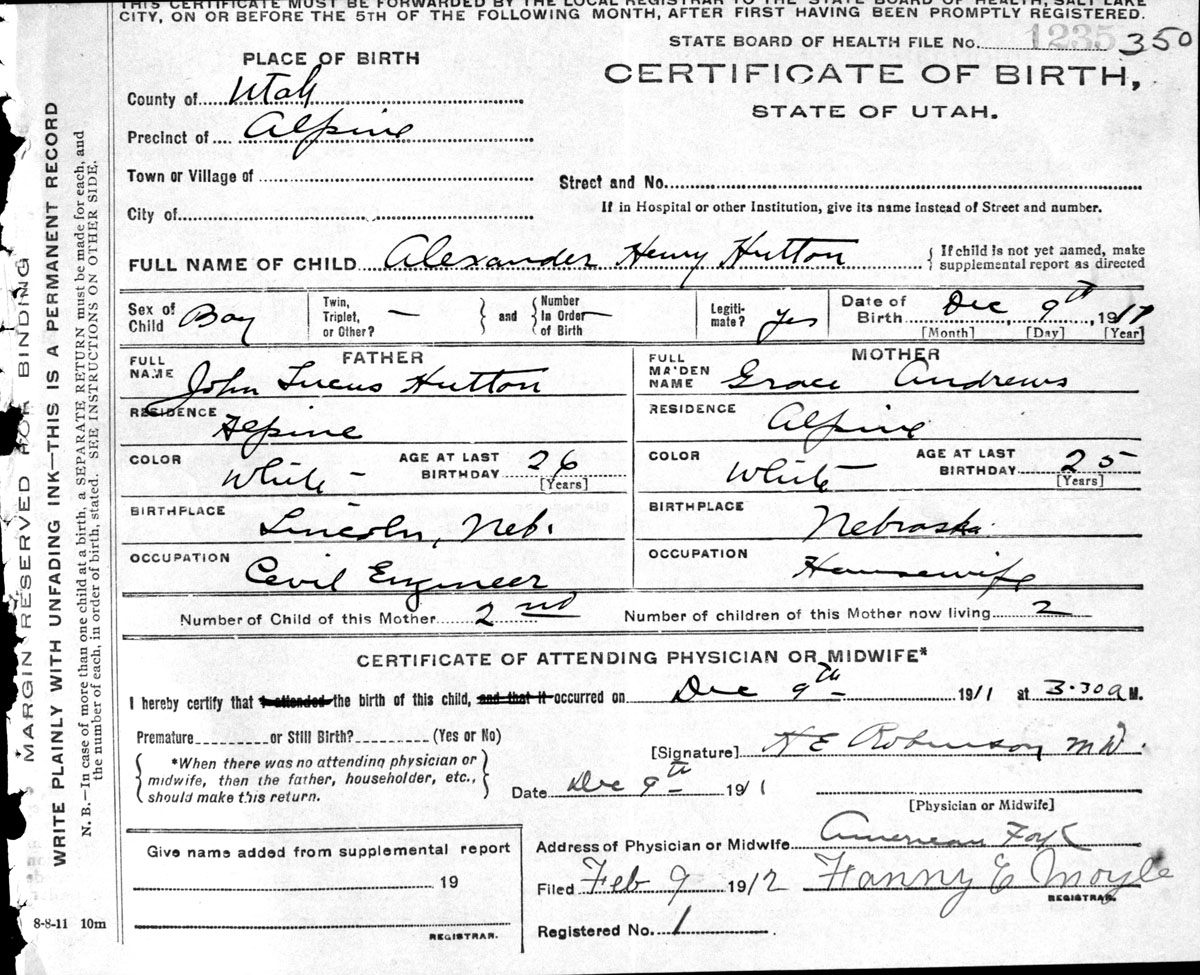 THIS CERTIFICATE MUST BE FORWARDED BY THE LOCAL REGISTRAR TO THE STATE BOARD OF HEALTH, SALT LAKE
CITY, ON OR BEFORE THE 5TH OF THE FOLLOWING MONTH, AFTER FIRST HAVING BEEN PROMPTLY REGISTERED.
STATE BOARD OF HEALTH FILE No. 1235 350
PLACE OF BIRTH
CERTIFICATE OF BIRTH,
STATE OF UTAH.
County of Utah
Precinct of Alpine
Town or Village of
Street and No.
City of
If in Hospital or other Institution, give its name instead of Street and number.
FULL NAME OF CHILD Alexander Henry Hutton { If child is not yet named, make supplemental report as directed
Sex of Child Boy
Twin, Triplet, or Other? —
} and { Number In Order of Birth —
Legitimate? yes
Date of Birth Dec 9th, 1911
[Month] [Day] [Year]
FATHER
FULL NAME John Lucus Hutton
RESIDENCE Alpine
COLOR White —
AGE AT LAST BIRTHDAY 26
[Years]
BIRTHPLACE Lincoln, Neb.
OCCUPATION Cevil Engineer
MOTHER
FULL MAIDEN NAME Grace Andrews
RESIDENCE Alpine
COLOR White
AGE AT LAST BIRTHDAY 25
[Years]
BIRTHPLACE Nebraska.
OCCUPATION Housewife
Number of Child of this Mother 2nd Number of children of this Mother now living 2
CERTIFICATE OF ATTENDING PHYSICIAN OR MIDWIFE*
I hereby certify that I attended the birth of this child, and that it occurred on Dec 9th 1911 at 3.30 a M.
Premature or Still Birth? (Yes or No)
*When there was no attending physician or
midwife, then the father, householder, etc.,
should make this return.
[Signature] H E Robinson MD.
Date Dec 9th 1911
[Physician or Midwife]
Give name added from supplemental report
19
REGISTRAR.
Address of Physician or Midwife American Fork
Filed Feb 9 1912 Fanny E Moyle
REGISTRAR.
Registered No. 1
8-8-11 10m
MARGIN RESERVED FOR BINDING
WRITE PLAINLY WITH UNFADING INK—THIS IS A PERMANENT RECORD
N. B.—In case of more than one child at a birth, a SEPARATE RETURN must be made for each, and
the number of each, in order of birth, stated. SEE INSTRUCTIONS ON OTHER SIDE.